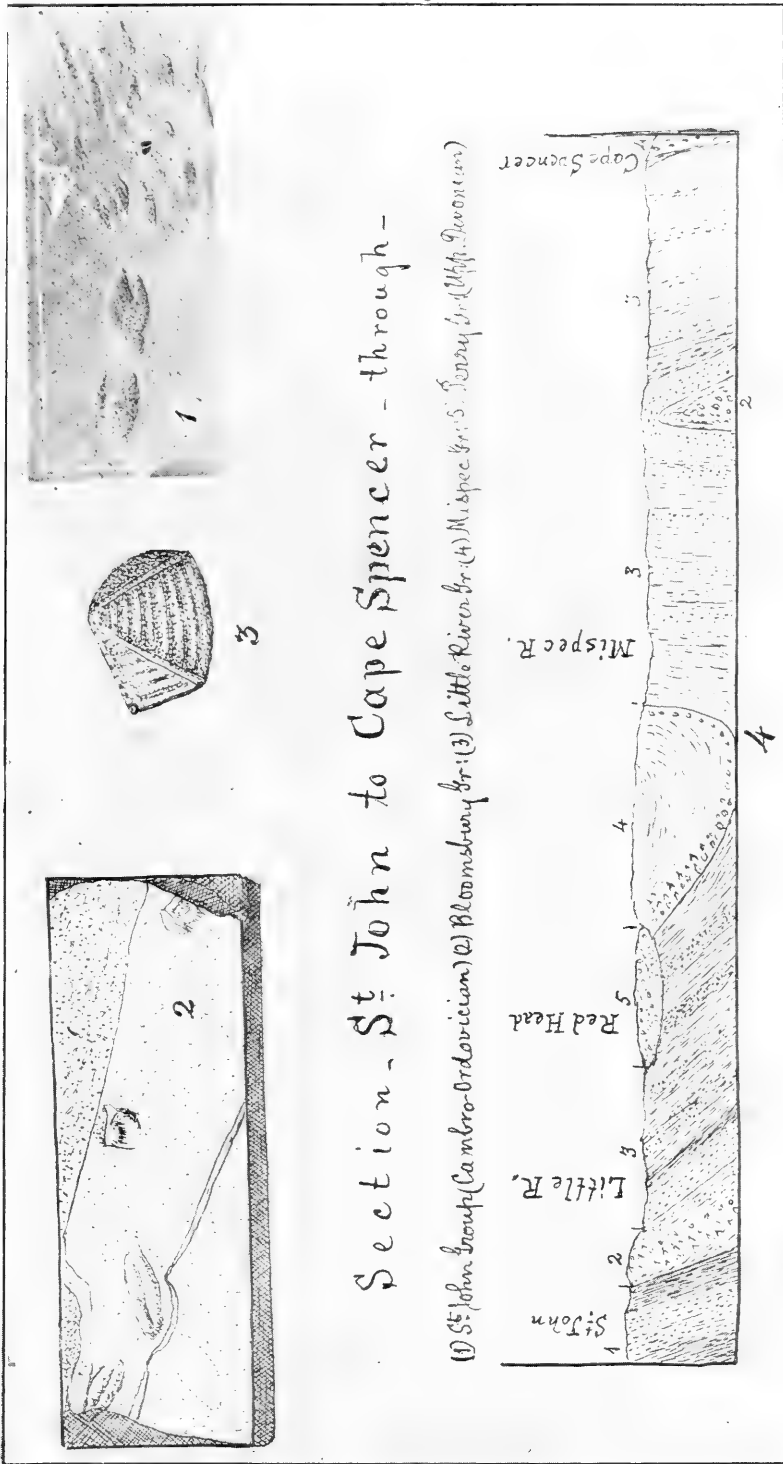 1.
3
2
Section - St. John to Cape Spencer - through -
(1) St. John Group (Cambro-Ordovician) (2) Bloomsbury Gr: (3) Little River Gr: (4) Mispec Gr: 5. Perry Gr. (Upp. Devonian)
St. John
Little R.
Red Head
Mispec R.
Cape Spencer
1
2
3
5
4
3
2
3
4